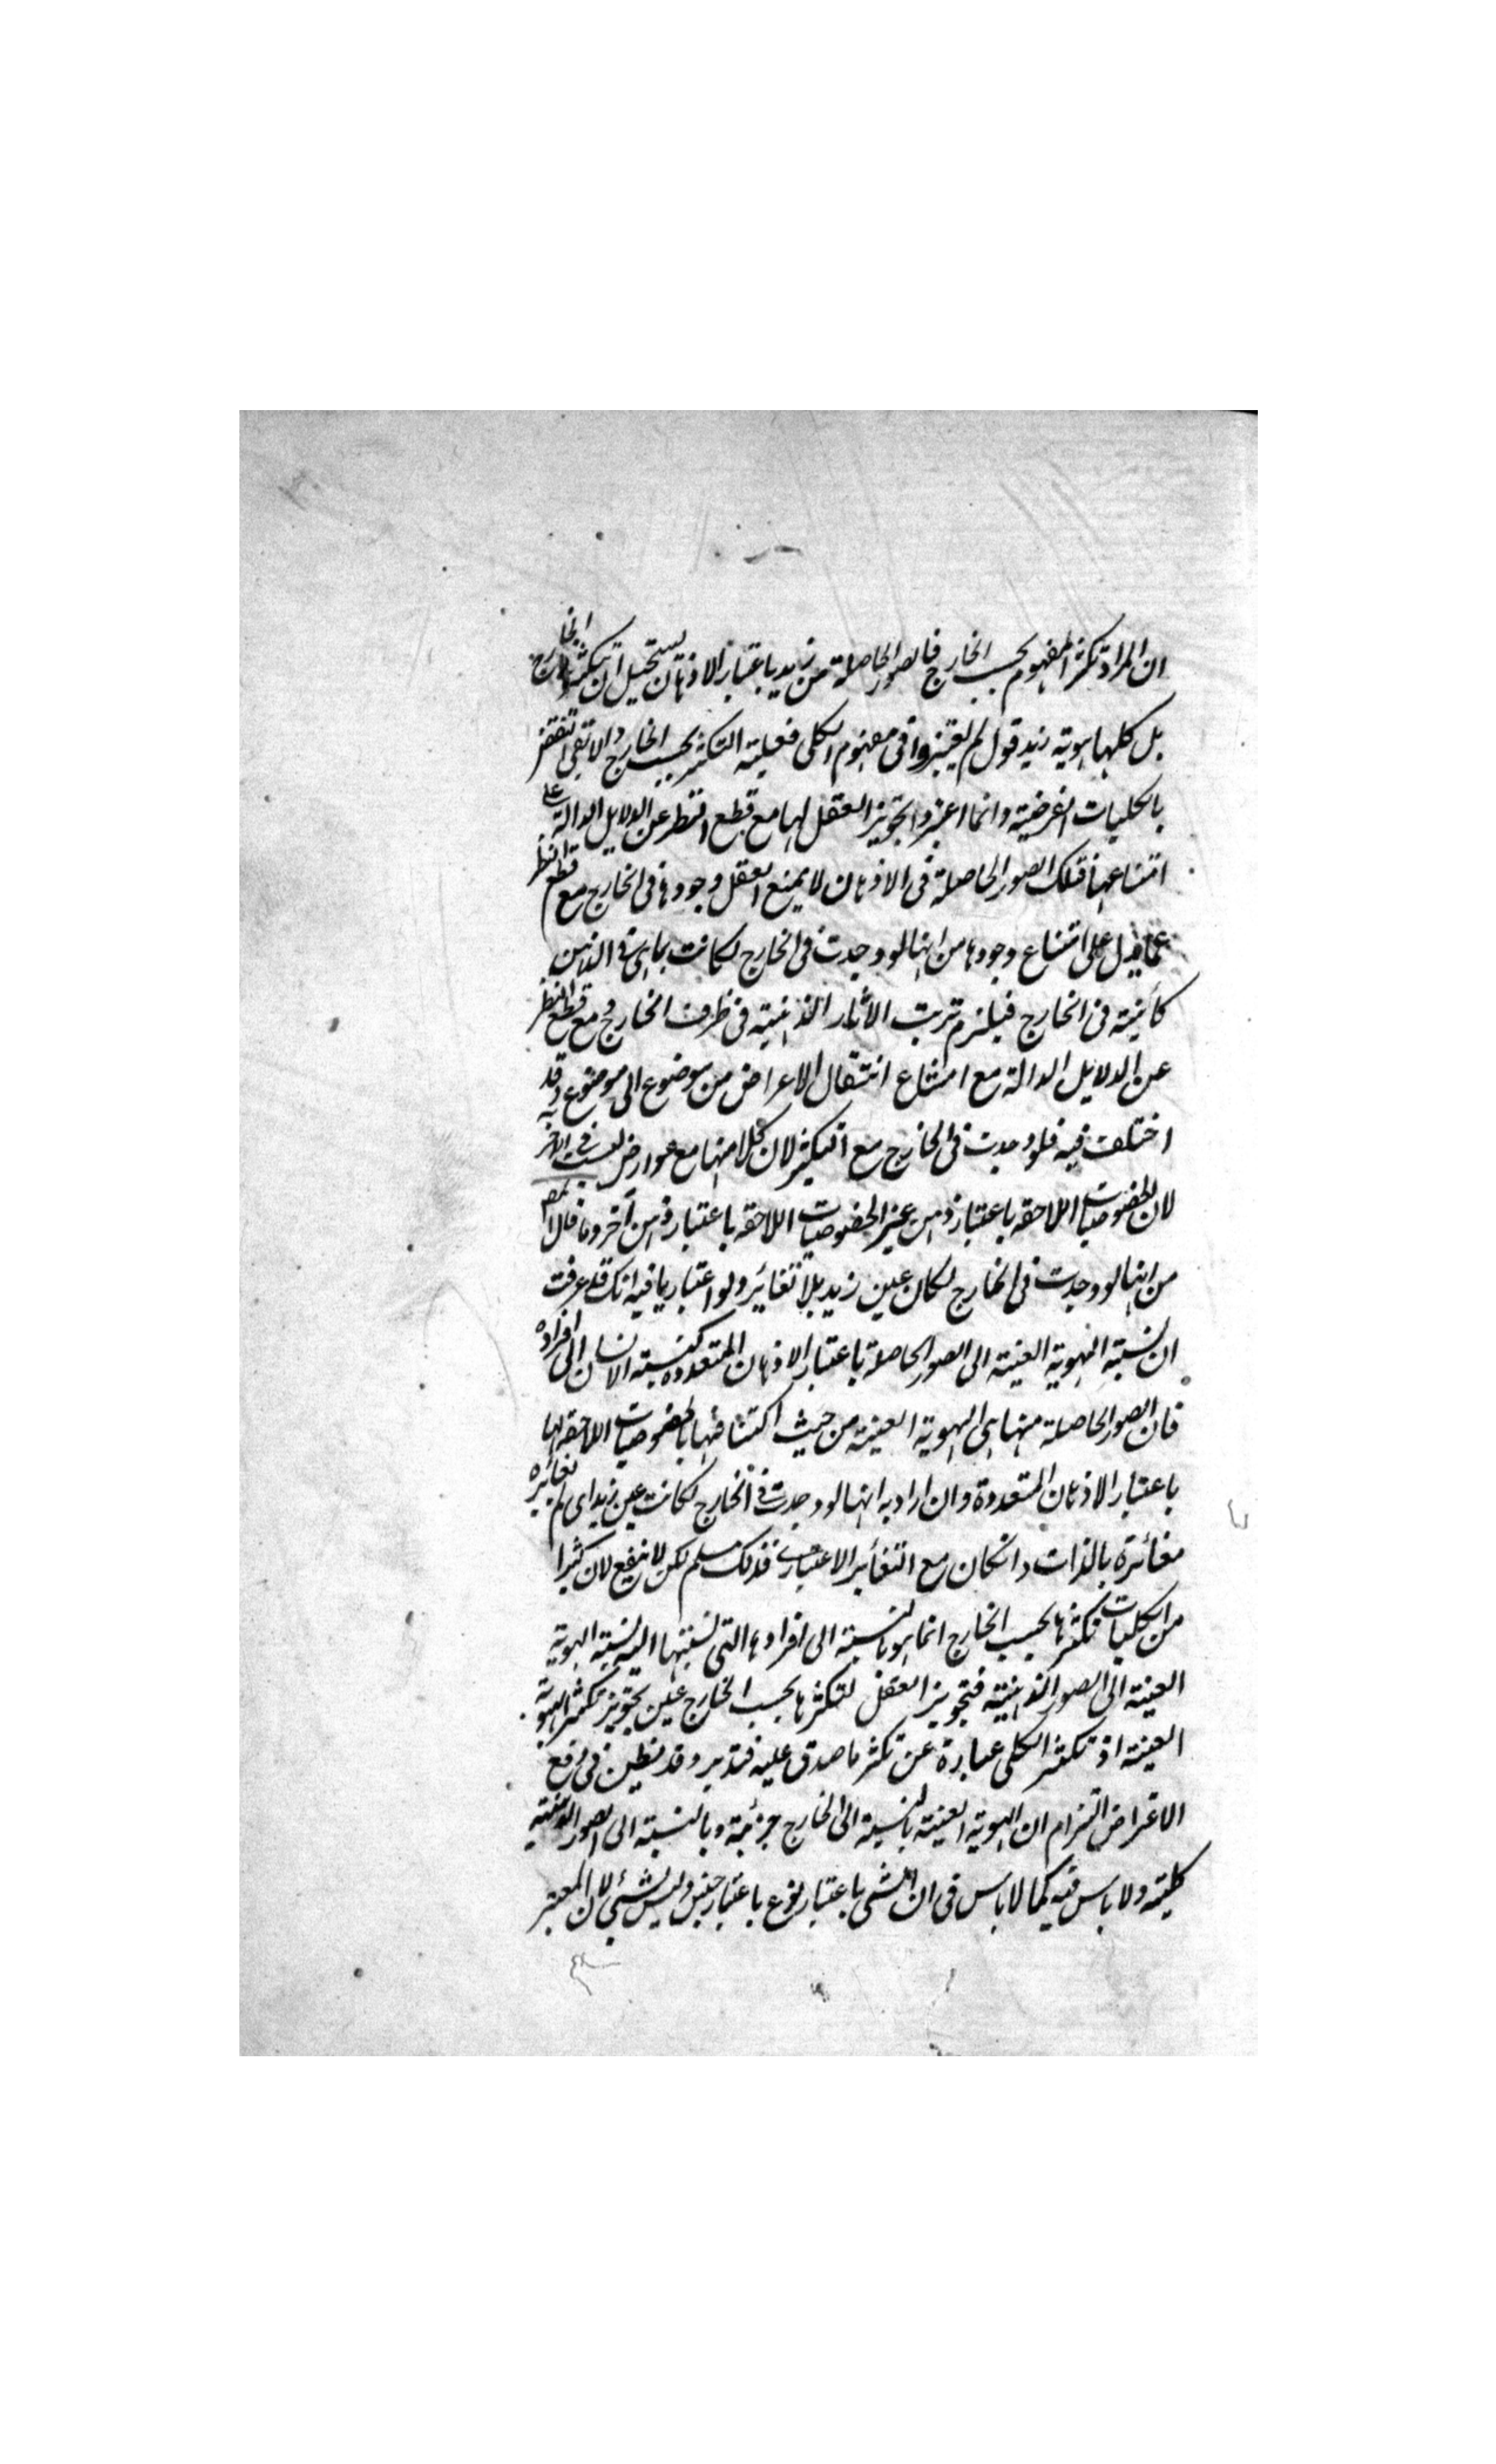 ان المراد تكثر المفهوم بحسب الخارج فالصور الحاصلة من زيد باعتبار الاذهان يستحيل ان يتكثر فى الخارج
بل كلها هوية زيد قول لم يعتبروا فى مفهوم الكلى فعلية التكثر بحسب الخارج والا تنتقض
بالكليات الفرضية وانما اعتبروا تجويز العقل لها مع قطع النظر عن الدلايل الدالة على
امتناعها فتلك الصور الحاصلة فى الاذهان لا يمنع العقل وجودها فى الخارج مع قطع النظر
عما يدل على امتناع وجودها من انها لو وجدت فى الخارج لكانت بما هى فى الذهن
كائنة فى الخارج فيلزم ترتب الآثار الذهنية فى ظرف الخارج ومع قطع النظر
عن الدلايل الدالة مع امتناع انتقال الاعراض من موضوع الى موضوع وقد
اختلف فيه فلو وجدت فى الخارج مع التكثر لان كلا منها مع عوارض ليست فى الاخر
لان الخصوصيات اللاحقة باعتبار ذهن غير الخصوصيات اللاحقة باعتبار ذهن آخر وما قال المص
من انها لو وجدت فى الخارج لكان عين زيد بلا تغائر ولو اعتباريا فيه انك قد عرفت
ان نسبته الهوية العينية الى الصور الحاصلة باعتبار الاذهان المتعددة كنسبته الانسان الى افراده
فان الصور الحاصلة منها هى الهوية العينية من حيث اكتنافها بالخصوصيات اللاحقة لها
باعتبار الاذهان المتعددة وان اراد به انها لو وجدت فى الخارج لكانت عين زيد اى لم تغائره
مغائرة بالذات وانكان مع التغائر الاعتبارى فذلك مسلم لكن لا ينفع لان كثيرا
من الكليات تكثرها بحسب الخارج انما هو بالنسبة الى افرادها التى نسبتها اليه نسبته الهوية
العينية الى الصور الذهنية فتجويز العقل لتكثرها بحسب الخارج عين تجويز تكثر الهوية
العينية اذ تكثر الكلى عبارة عن تكثر ما صدق عليه فتدبر وقد يظن فى دفع
الاعتراض التزام ان الهوية العينية بالنسبة الى الخارج جزئية وبالنسبة الى الصور الذهنية
كلية ولا باس فيه كما لا باس فى ان الشى باعتبار نوع باعتبار جنس وليس بشئ لان المعتبر